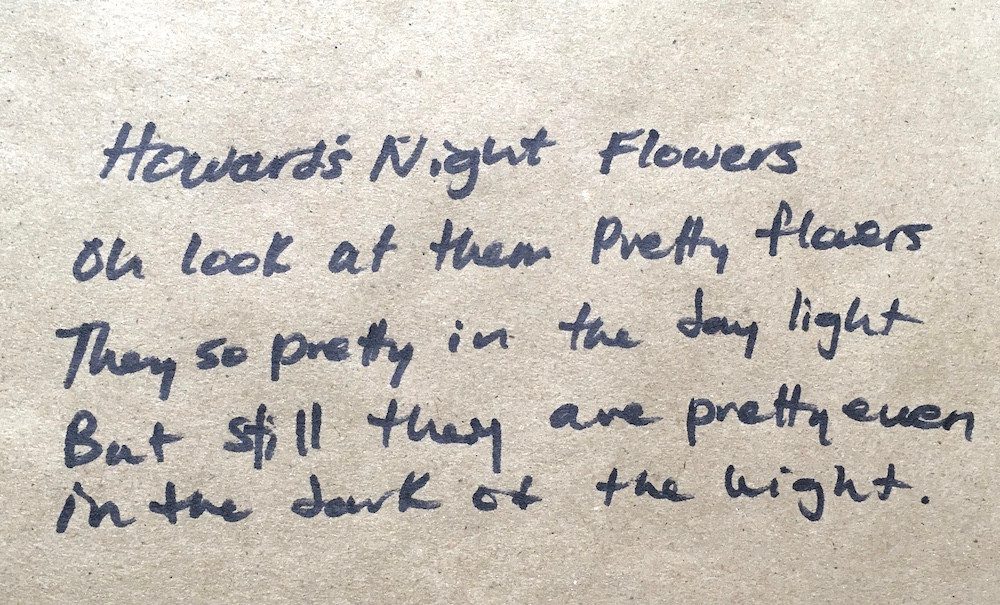 Howard's Night Flowers
Oh look at them Pretty flowers
They so pretty in the day light
But still they are pretty even
in the dark of the night.